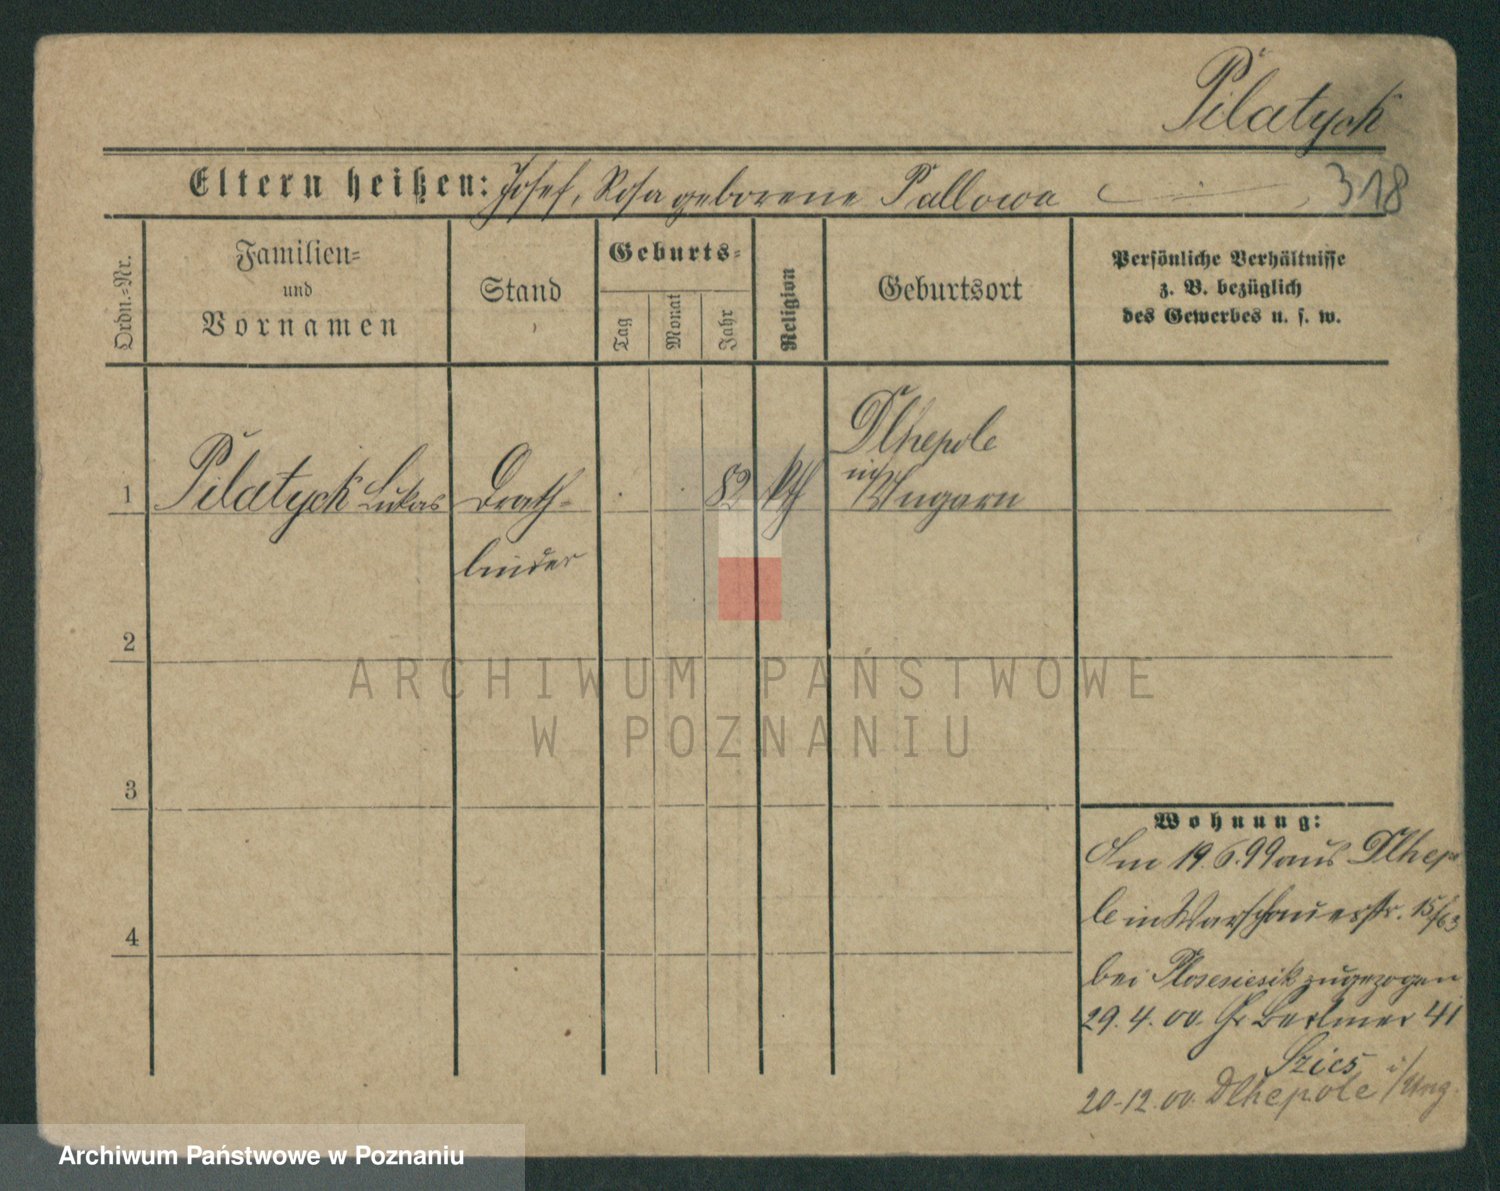 Pilatyck
Eltern heißen: Josef, Rosa geborene Pallowa
318
Ordn.-Nr.
Familien-
und
Vornamen
Stand
Geburts-
Tag
Monat
Jahr
Religion
Geburtsort
Persönliche Verhältnisse
z. B. bezüglich
des Gewerbes u. s. w.
1 Pilatyck Lukas Drath- 82 kth Dlhepole
binder in Ungarn
2
3
4
Wohnung:
Am 19.6.99 aus Dlhepo
le in Warschauerstr. 15/63
bei zugezogen
29.4.00. Gr Berliner 41
Szies
20-12.00. Dlhepole i/Ung.
ARCHIWUM PAŃSTWOWE
W POZNANIU
Archiwum Państwowe w Poznaniu